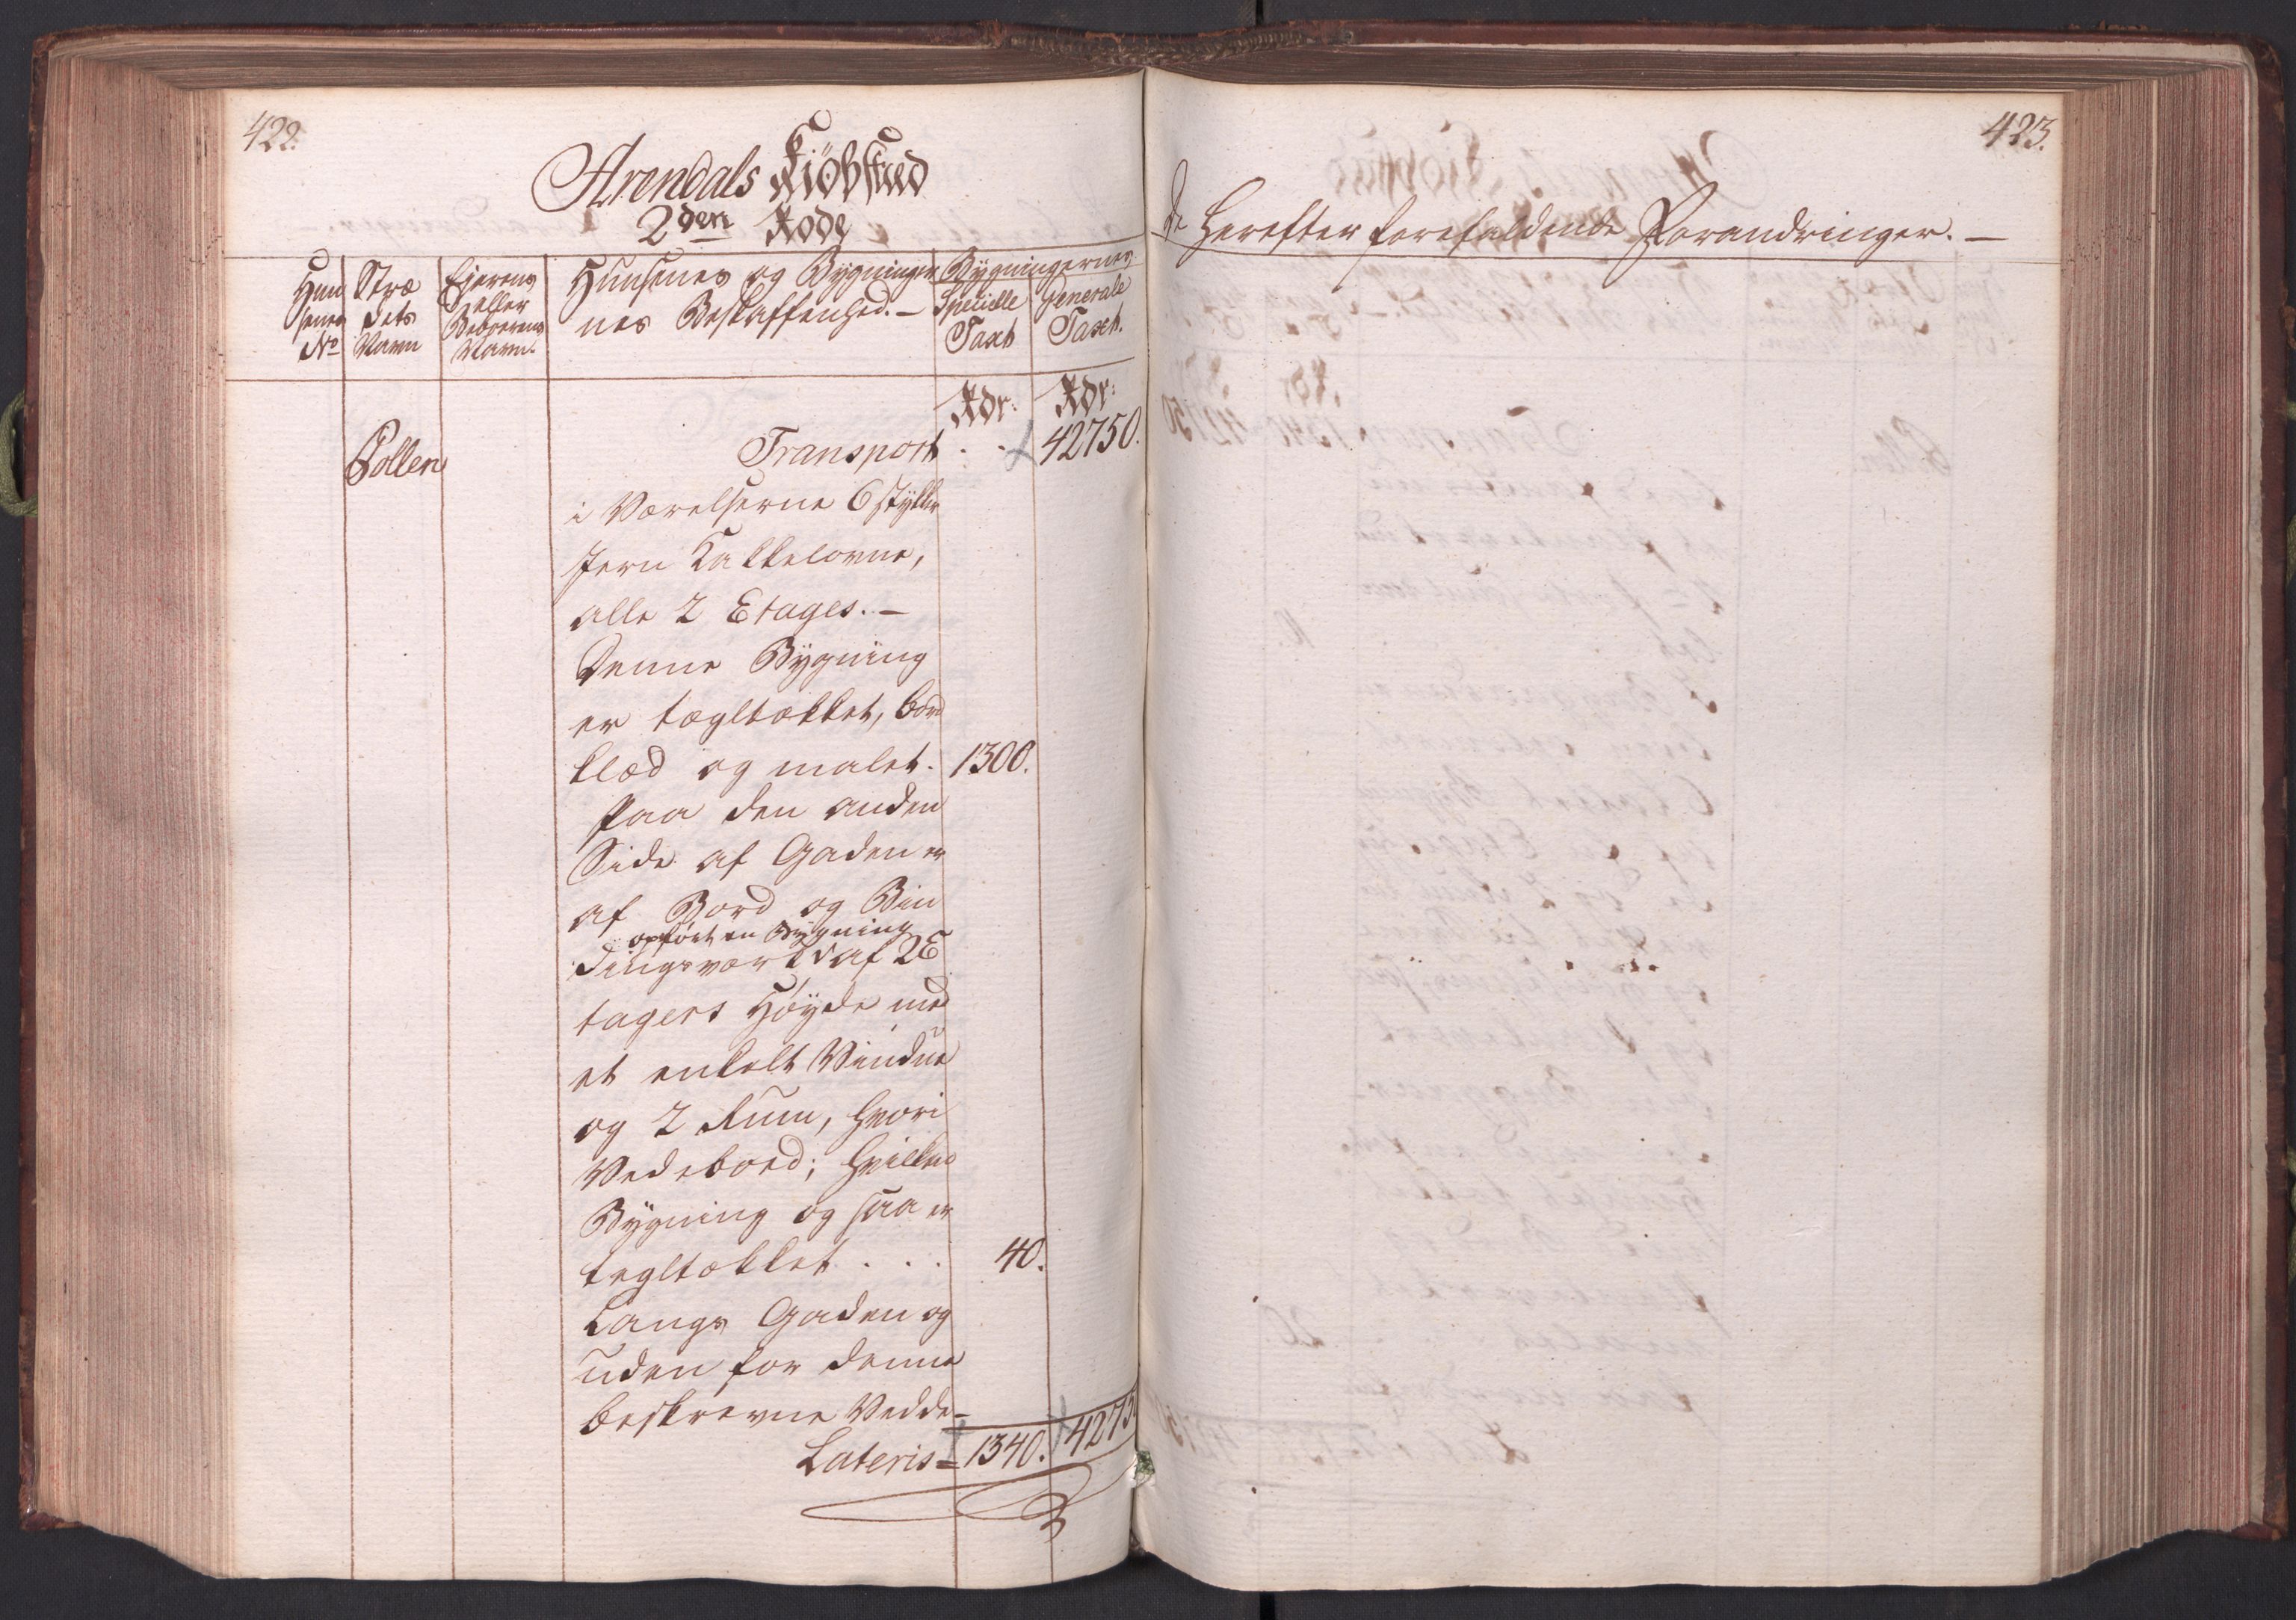 422.
Arendals Kiöbstæd
2den Rode
Huu
senes
No
Stræ
dets
Navn
Ejerens
eller
Beboerens
Navn.
Huusenes og Bygninger
nes Beskaffenhed. –
Bygningernes
Specielle
Taxt
Generale
Taxt.
Rdr:
Rdr:
Pollen
Transport . . 42750.
i Værelserne 6 stykker
Jern Kakkelovne,
alle 2 Etages. –
Denne Bygning
er tægltækket, bord
klæd og malet. 1300.
Paa den anden
Side af Gaden er
af Bord og Bin
opført en Bygning
dingsværk af 2 E
tagers Høyde med
et enkelt Vindue
og 2 Rum, hvori
Vedeboed; hvilken
Bygning og saa er
tegltækket . . . 40.
Langs Gaden og
uden for denne
beskrevne Vedde-
Lateris = 1340. 42750
423.
De herefter forefaldende Forandringer. –